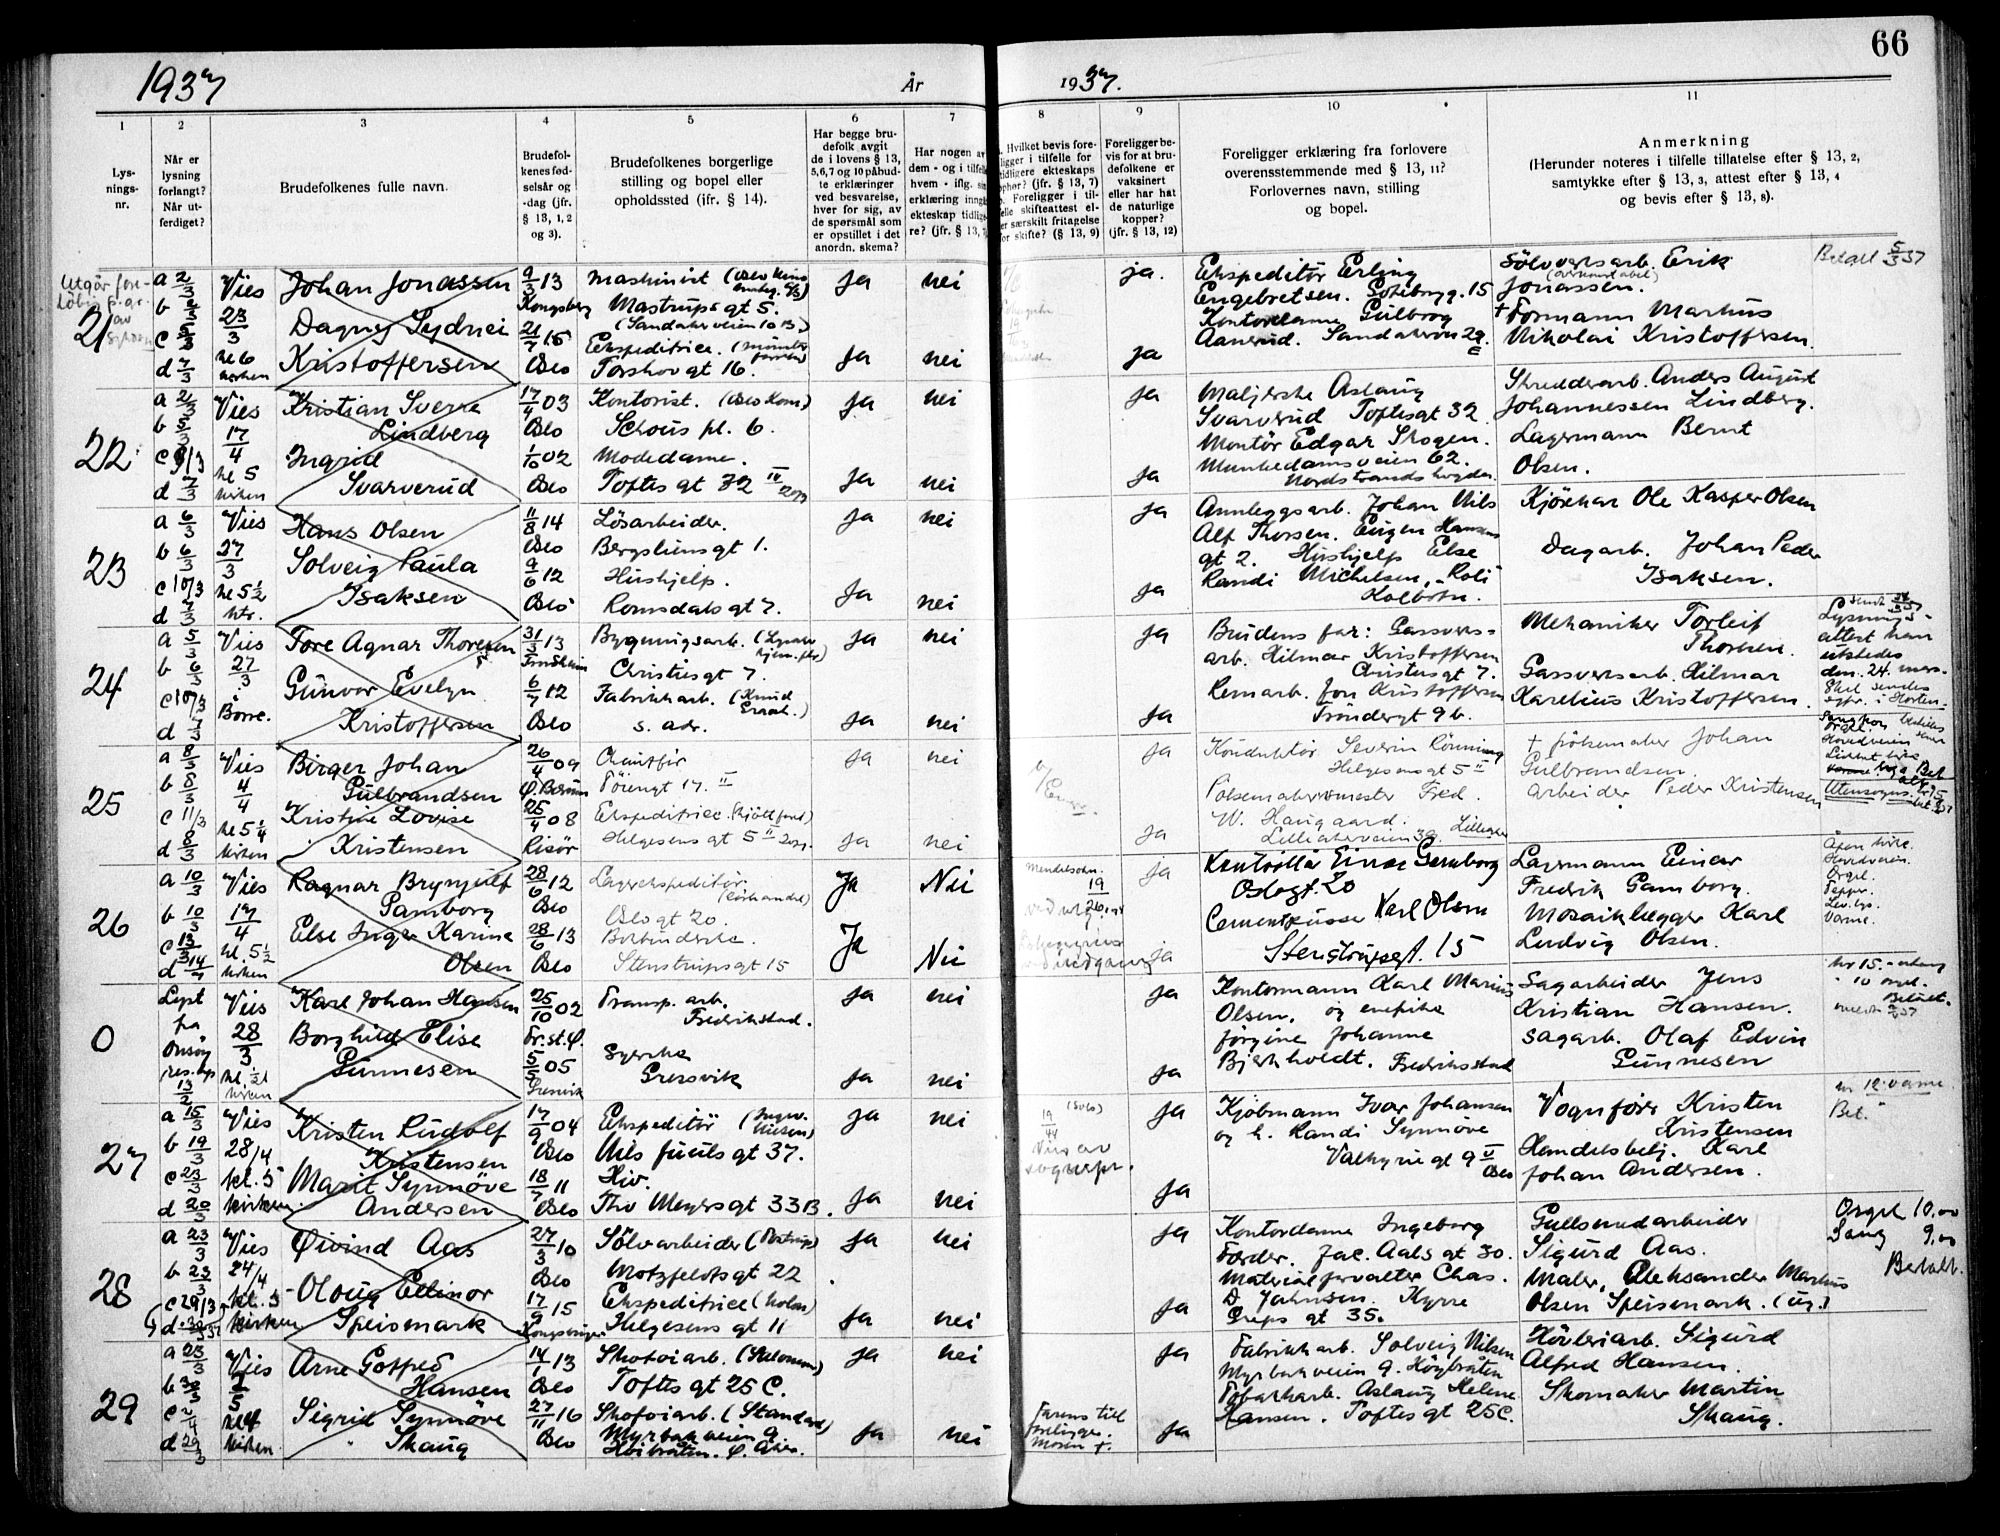 66
1937 År 1937.
1 2 3 4 5 6 7 8 9 10 11
Lys-
nings-
nr.
Når er
lysning
forlangt?
Når ut-
ferdiget?
Brudefolkenes fulle navn.
Brudefol-
kenes fød-
selsår og
-dag (jfr.
§ 13, 1, 2
og 3).
Brudefolkenes borgerlige
stilling og bopel eller
opholdssted (ifr. § 14).
Har begge bru-
defolk avgit
de i lovens § 13,
5,6,7 og 10 påbud-
te erklæringer
ved besvarelse,
hver for sig, av
de spørsmål som
er opstillet i det
anordn. skema?
Har nogen av
dem - og i tilfelle
hvem - iflg. sin
erklæring inngått
ekteskap tidlige-
re? (jfr. § 13, 7)
Hvilket bevis fore-
ligger i tilfelle for
tidligere ekteskaps
ophør? (jfr. § 13, 7)
Foreligger i til-
felle skifteattest el-
ler særskilt fritagelse
for skifte? (§ 13, 9)
Foreligger be-
vis for at bru-
defolkene er
vaksinert
eller har hat
de naturlige
kopper?
(jfr. § 13, 12)
Foreligger erklæring fra forlovere
overensstemmende med § 13, 11?
Forlovernes navn, stilling
og bopel.
Anmerkning
(Herunder noteres i tilfelle tillatelse efter § 13, 2,
samtykke efter § 13, 3, attest efter § 13, 4
og bevis efter § 13, 8).
21
a 2/3
d 7/3
Vies
23/3
kl 6
kirken
Johan Jonassen
Dagny Sydnei
Kristoffersen
9/3 13
Kongsberg
21/7 15
Oslo
Maskinist
Mastrups gt 5.
(Sandakerveien 10 B)
Ekspeditrice.
Torshov gt 16.
Ja nei
Ja nei
ja.
ja
Ekspeditør Erling
Engebretsen. Gøteborg. 15
Kontordame Gulborg
Aanerud. Sandakervn 29
Sølvversarb. Erik
Jonassen.
+ Formann Markus
Nikolai Kristoffersen.
Betalt 5/3 37
22
a 2/3
b 5/3
c 9/3
d 7/3
Vies
17/4
kl 5
kirken
Kristian Sverre
Lindberg
Ingrid
Svarverud
17/4 03
Oslo
1/10 02
Oslo
Kontorist. (Oslo Kom)
Schous pl. 6.
Modedame.
Toftes gt 32 IV
Ja nei
Ja nei
ja
ja
Maljerske Aslaug
Svarverud Toftesgt 32
Montør Edgar Skogen.
Munkedamsveien 62.
Nordstrandshøgda
Skredderarb. Anders August
Johannessen Lindberg.
Lagermann Bernt
Olsen.
23
a 6/3
b 6/3
c 10/3
d 7/3
Vies
27/3
kl 5 1/2
ktr.
Hans Olsen
Solveig Paula
Isaksen
11/8 14
Oslo
9/6 12
Oslo
Løsarbeider.
Bergsliens gt 1.
Hushjelp.
Romsdals gt 7.
Ja nei
Ja nei
ja
ja
Annleggsarb. Johan Nils
Alf Thorsen. Eugen Hansens
gt 2. Hushjelp Else
Randi Michelsen,
Kolbotn.
Kjørekar Ole Kasper Olsen
Dagarb. Johan Peder
Isaksen.
24
a 5/3
b 6/3
c 10/3
d 7/3
Vies
27/3
i
Borre.
Tore Agnar Thoresen
Gunvor Evelyn
Kristoffersen
31/3 13
Trondheim
6/7 12
Oslo
Bygningsarb.
Christies gt 7.
Fabrikkarb.
s. adr.
Ja nei
Ja nei
ja
ja
Brudens far: Gassverks-
arb. Hilmar Kristoffersen
Christies gt 7.
Remarb. Jon Kristoffersen
Trønder gt 9 b.
Mekaniker Torleif
Thoresen.
Gassverksarb. Hilmar
Karelius Kristoffersen.
Lysnings-
attest kan
utstedes
den 24. mars.
25
a 8/3
b 8/3
c 11/3
d 8/3
Vies
4/4
kl 5 1/4
kirken
Birger Johan
Gulbrandsen
Kristine Lovise
Kristensen
26/4 09
Ø. Bærum
25/4 08
Risør
Chauffør
Tøiengt 17. II
Ekspeditrice.
Helgesens gt 5 II
Ja nei
Ja nei
ja
Ja
Konduktør Severin Rønning
Helgesens gt 5 II
Pølsemakermester Fred.
W. Haugaard.
Lilleakerveien 30 Lilleaker
+ Pølsemaker Johan
Gulbrandsen.
Arbeider Peder Kristensen
26
a 10/3
b 10/3
c 13/3
d 14/4
Vies
17/4
kl. 5 1/2
kirken
Ragnar Brynjulf
Gamborg
Else Inger Karine
Olsen
28/6 12
Oslo
28/6 13
Oslo
Lagerekspeditør
Oslogt 20.
Bokbinderske.
Stenstrupsgt 15
Ja Nei
Ja Nei
ja
ja
Kontrollør Einar Gamborg
Oslogt. 20
Cementpusser Karl Olsen
Stenstrupsgt. 15
Lagermann Einar
Fredrik Gamborg.
Mosaiklegger Karl
Ludvig Olsen.
Åpen kirke.
Hovedveien.
Orgel.
Tepper.
Lev. lys.
Varme.
0
Lyst
fra
Onsøy
13/2
Vies
28/3
kirken
Karl Johan Hansen
Borghild Elise
Gunnesen
25/10 02
Fr.st. Ø.
5/5 05
Gresvik
Transp. arb.
Fredrikstad.
Syerske
Gresvik
Ja nei
Ja nei
ja
ja
Kontormann Karl Marius
Olsen, og enefike
Jørgine Johanne
Bjerkholdt. Fredrikstad
Sagarbeider Jens
Kristian Hansen.
Sagarb. Olaf Edvin
Gunnesen
27
a 15/3
b 19/3
c 23/3
d 20/3
Vies
28/4
kl. 5
kirken.
Kristen Rudolf
Kristensen
Marit Synnøve
Andersen
17/9 04
Oslo
18/7 11
Oslo
Ekspeditør
Nils Juels gt 37.
Hiv.
Thv Meyers gt 33 B.
Ja nei
Ja nei
ja
ja
Kjøbmann Ivar Johansen
og h. Randi Synnøve
Valkyriegt 9 II
Oslo
Vognfører Kristen
Kristensen
Handelsbetj. Karl
Johan Andersen.
kr 12. varme.
Bet.
28
a 23/3
b 23/3
c 29/3
d 30/3 37
Vies
24/4
kl. 5
kirken
Øivind Aas
Olaug Ellinor
Speismark
27/3 10
Oslo
17/9 15
Kongsvinger
Sølvarbeider
Motzfeldts gt 22
Ekspeditrice (Holm)
Helgesens gt 11
Ja nei
Ja nei
ja
Ja
Kontordame Ingeborg
Førder. Jac. Aals gt 30.
Materialforvalter Chas.
D. Johnsen. Kyrre
Greps gt 35.
Gullsmedarbeider
Sigurd Aas.
Maler, Aleksander Markus
Olsen Speismark. (ug.)
Orgel 10.00
Sang 9,00
Betalt.
29
a 23/3
b 30/3
Vies
2/5
kirken.
Arne Gotfred
Hansen
Sigrid Synnøve
Skaug
14/1 13
Oslo
27/11 16
Oslo
Skotøiarb. (Salomon)
Toftes gt 25 C.
Skotøiarb. (Standard)
Myrbakveien 9
Høibråten. Ø. Aker.
Ja nei
Ja nei
Farens till
foreligger.
Moren +.
ja
ja
Fabrikkarb. Solveig Nilsen
Myrbakveien 9. Høybråten
Tobakkarb. Aslaug Helene
Hansen. Toftes gt 25 C.
Høvleriarb. Sigurd
Alfred Hansen.
Skomaker Martin
Skaug.